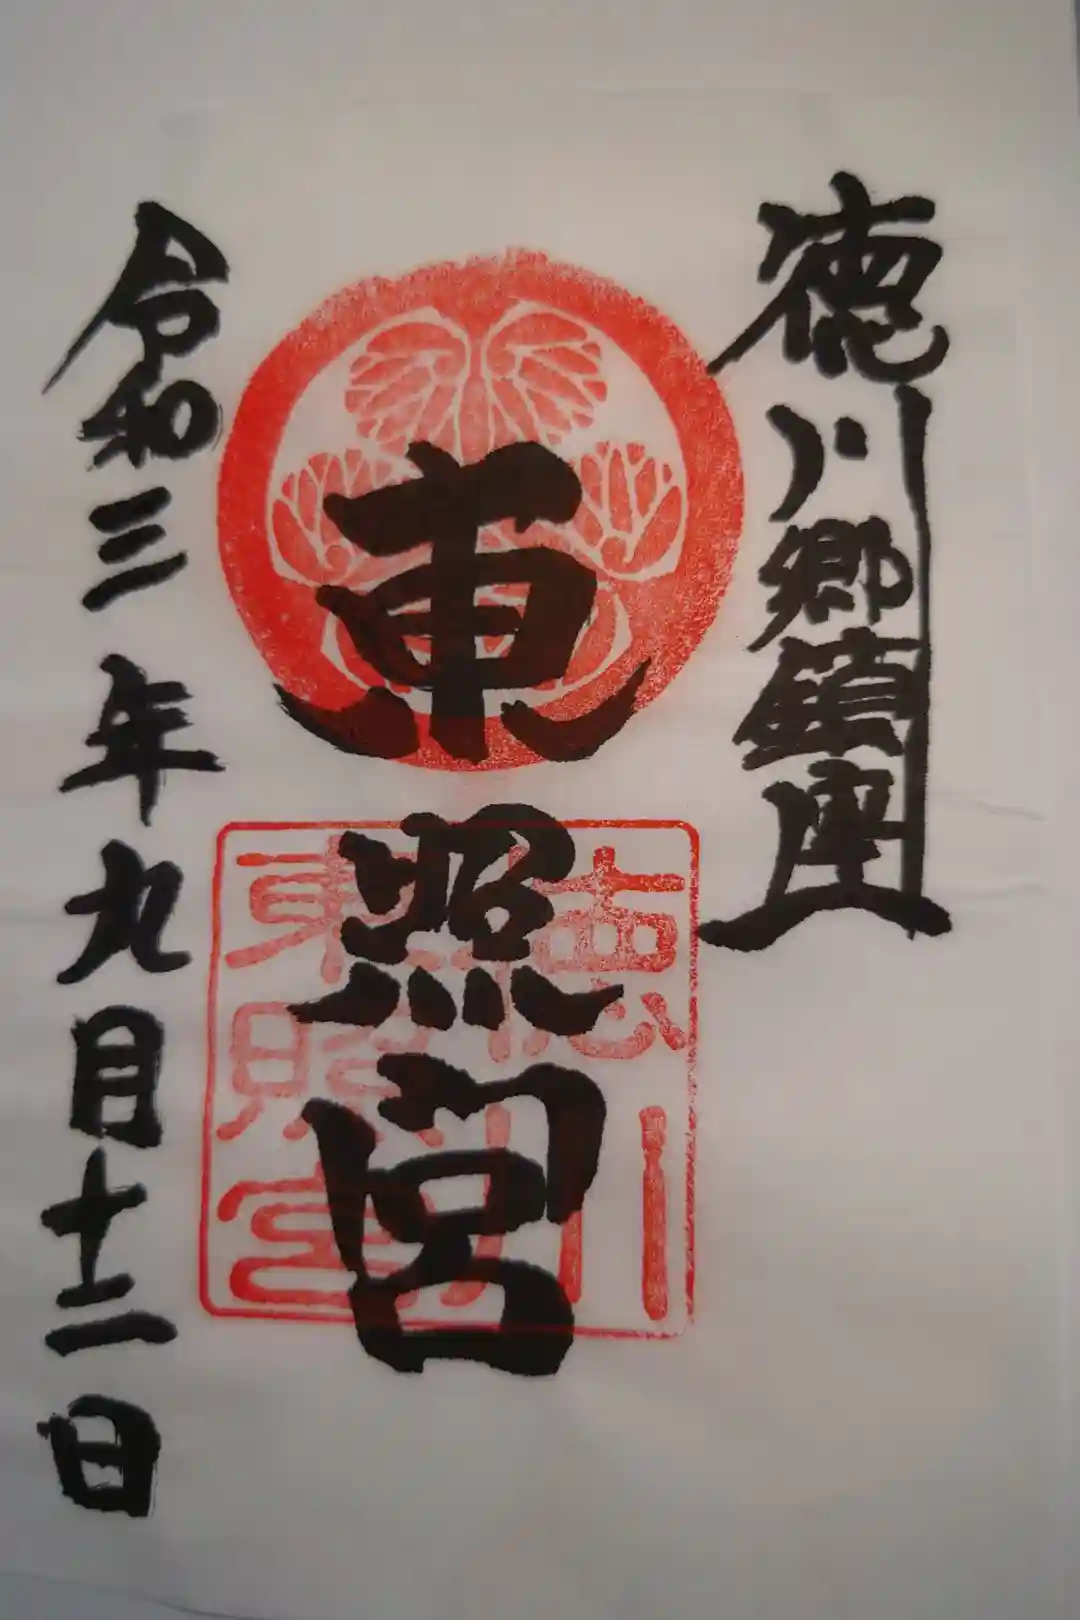 徳川郷鎮座
東照宮
令和三年九月十二日
徳川
東照宮